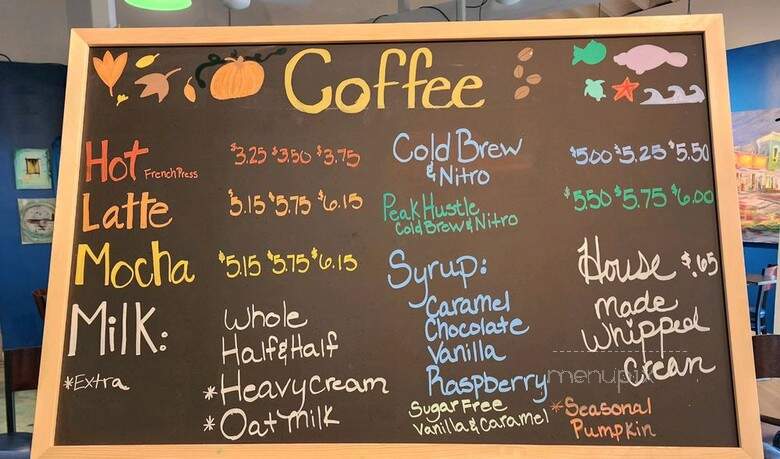 Coffee
Hot French Press $3.25 $3.50 $3.75
Latte $5.15 $5.75 $6.15
Mocha $5.15 $5.75 $6.15
Milk: Whole
Half & Half
*Extra *Heavy cream
*Oat Milk
Cold Brew & Nitro $5.00 $5.25 $5.50
Peak Hustle $5.50 $5.75 $6.00
Cold Brew & Nitro
Syrup:
Caramel
Chocolate
Vanilla
Raspberry
Sugar Free
Vanilla & Caramel
House $.65
made
Whipped
Cream
*Seasonal
Pumpkin
menupix